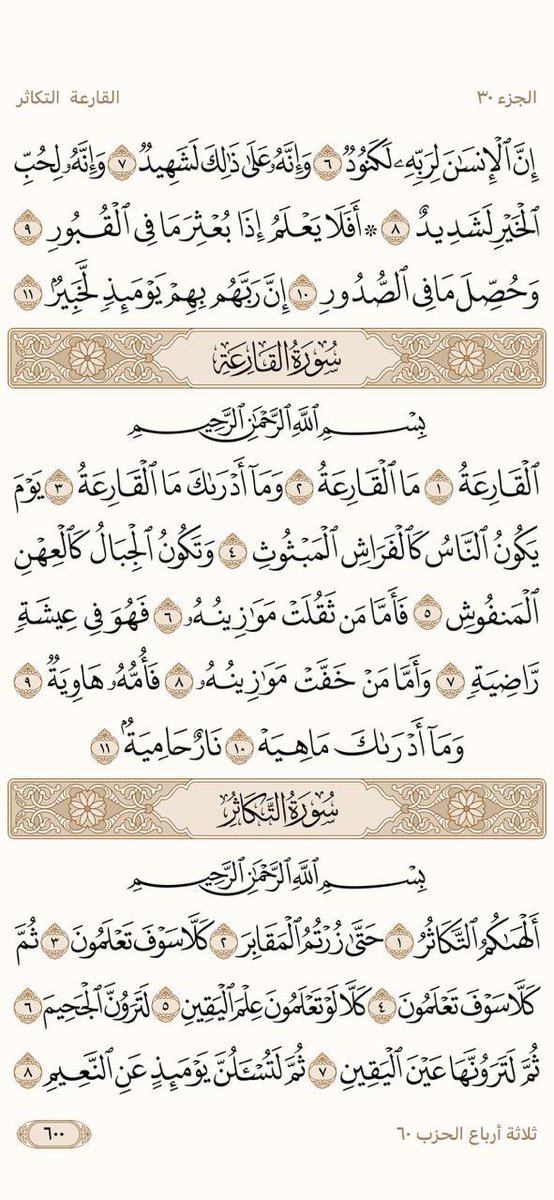 الجزء ٣٠
القارعة التكاثر
إِنَّ ٱلْإِنسَـٰنَ لِرَبِّهِۦ لَكَنُودٌۭ ٦ وَإِنَّهُۥ عَلَىٰ ذَٰلِكَ لَشَهِيدٌۭ ٧ وَإِنَّهُۥ لِحُبِّ
ٱلْخَيْرِ لَشَدِيدٌ ٨ ۞ أَفَلَا يَعْلَمُ إِذَا بُعْثِرَ مَا فِى ٱلْقُبُورِ ٩
وَحُصِّلَ مَا فِى ٱلصُّدُورِ ١٠ إِنَّ رَبَّهُم بِهِمْ يَوْمَئِذٍۢ لَّخَبِيرٌۢ ١١
سُورَةُ القَارِعَةِ
بِسْمِ ٱللَّهِ ٱلرَّحْمَـٰنِ ٱلرَّحِيمِ
ٱلْقَارِعَةُ ١ مَا ٱلْقَارِعَةُ ٢ وَمَآ أَدْرَىٰكَ مَا ٱلْقَارِعَةُ ٣ يَوْمَ
يَكُونُ ٱلنَّاسُ كَٱلْفَرَاشِ ٱلْمَبْثُوثِ ٤ وَتَكُونُ ٱلْجِبَالُ كَٱلْعِهْنِ
ٱلْمَنفُوشِ ٥ فَأَمَّا مَن ثَقُلَتْ مَوَٰزِينُهُۥ ٦ فَهُوَ فِى عِيشَةٍۢ
رَّاضِيَةٍۢ ٧ وَأَمَّا مَنْ خَفَّتْ مَوَٰزِينُهُۥ ٨ فَأُمُّهُۥ هَاوِيَةٌۭ ٩
وَمَآ أَدْرَىٰكَ مَا هِيَهْ ١٠ نَارٌ حَامِيَةٌۢ ١١
سُورَةُ التَّكَاثُرِ
بِسْمِ ٱللَّهِ ٱلرَّحْمَـٰنِ ٱلرَّحِيمِ
أَلْهَىٰكُمُ ٱلتَّكَاثُرُ ١ حَتَّىٰ زُرْتُمُ ٱلْمَقَابِرَ ٢ كَلَّا سَوْفَ تَعْلَمُونَ ٣ ثُمَّ
كَلَّا سَوْفَ تَعْلَمُونَ ٤ كَلَّا لَوْ تَعْلَمُونَ عِلْمَ ٱلْيَقِينِ ٥ لَتَرَوُنَّ ٱلْجَحِيمَ ٦
ثُمَّ لَتَرَوُنَّهَا عَيْنَ ٱلْيَقِينِ ٧ ثُمَّ لَتُسْـَٔلُنَّ يَوْمَئِذٍ عَنِ ٱلنَّعِيمِ ٨
ثلاثة أرباع الحزب ٦٠
٦٠٠